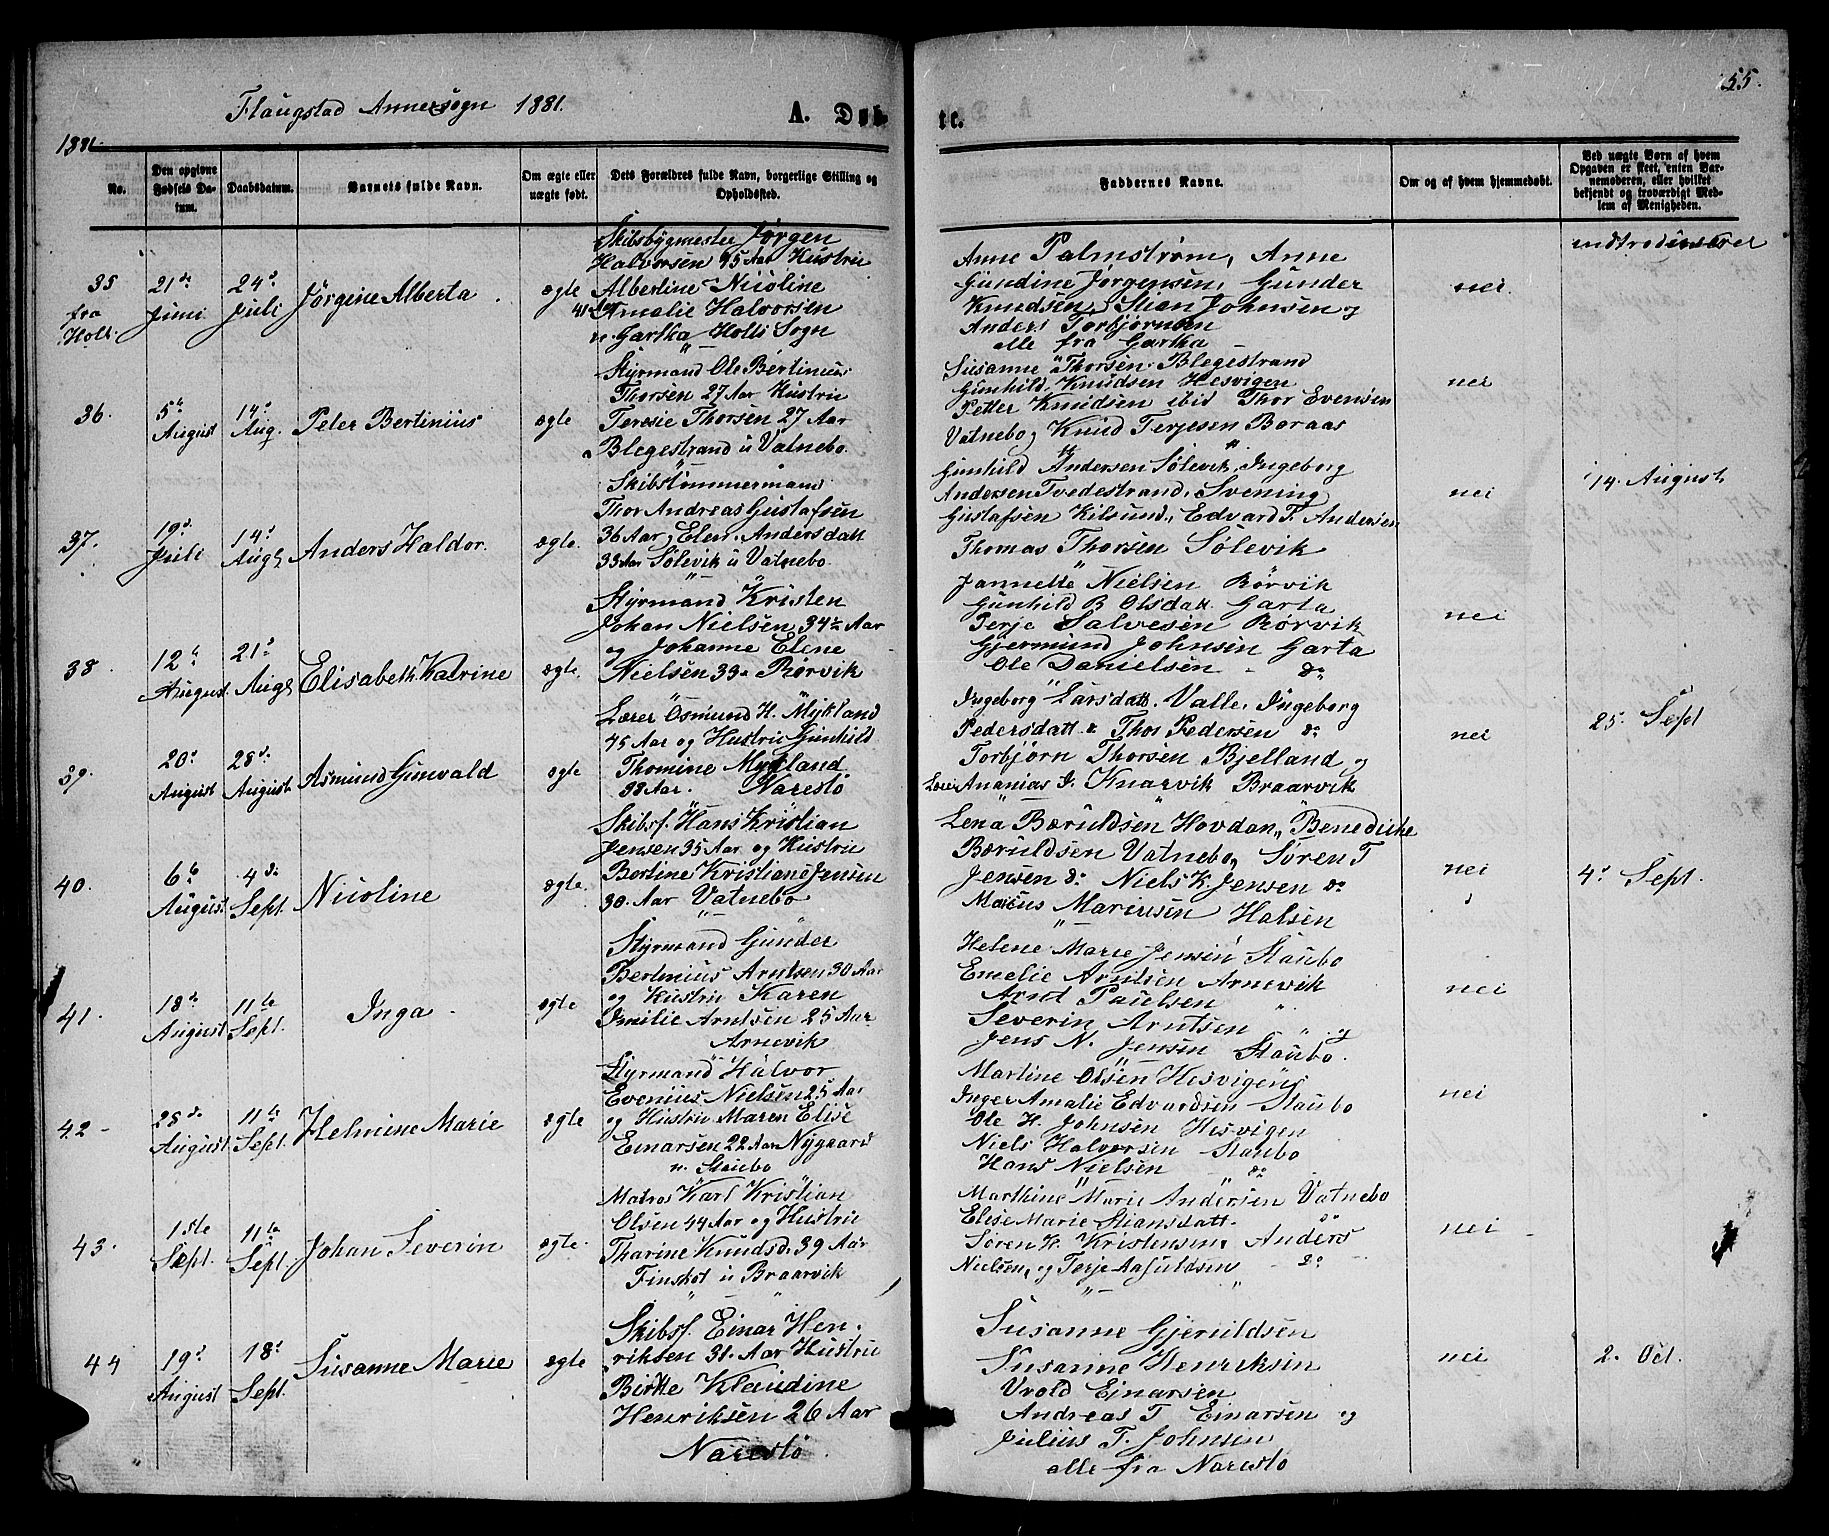 Flaugstad Annexsogn 1881.
A. Døb-
te.
55.
1881.
No.
Den opgivne Fødsels Da-tum.
Daabsdatum.
Barnets fulde Navn.
Om ægte eller uægte født.
Dets Forældres fulde Navn, borgerlige Stilling og Opholdssted.
Faddernes Navne.
Om og af hvem hjemmedøbt.
Ved uægte Børn af hvem Opgaven er skeet, enten Bar-nemoderen, eller hvilket bekjendt og troværdigt Med-lem af Menigheden.
indtroduseret
35
fra
Holt
21de
Juni
24de
Juli
Jørgine Alberta
ægte
Skibsbygmester Jørgen
Halvorsen 45 Aar Hustru
Albertine Nicoline
41 Aar Amalie Halvorsen
Gartha Holts Sogn
Anne Palmstrøm, Anne
Gundine Jørgensen, Gunder
Knudsen, Stian Johnsen og
Anders Torbjørnsen
alle fra Gartha
nei
36.
5te
August
14de
Aug.
Peter Bertinius
ægte
Styrmand Ole Bertinius
Thorsen 27 Aar Hustru
Teresie Thorsen 27 Aar
Blegestrand u Vatnebo.
Susanne Thorsen Blegestrand
Gunhild Knudsen Hesvigen
Petter Knudsen ibid Thor Evensen
Vatnebo, Knud Terjesen Boraas
nei
37.
19de
Juli
14de
Augt
Anders Haldor.
ægte.
Skibstømmermand
Thor Andreas Gustafsen
36 Aar, Elen Andersdatt
33 Aar Sølevik u Vatnebo.
Gunhild Andersen Sølevik, Ingeborg
Andersen Tvedestrand, Svening
Gustafsen Kilsund, Edvard T. Andersen
Thomas Thorsen Sølevik
nei
14. August
38
12te
August
21de
Augt
Elisabeth Katrine
ægte.
Styrmand Kristen
Johan Nielsen 34½ Aar
og Johanne Elene
Nielsen 33a Rørvik
Jannette Nielsen Rørvik
Gunhild B Olsdatt. Garta
Terje Salvesen Rørvik
Gjermund Johnsen Garta
Ole Danielsen - do
nei
39.
20de
August
28de
August
Asmund Gunvald
ægte
Lærer Osmund H. Mykland
45 Aar og Hustru Gunhild
Thomine Mykland
38 Aar. Narestø
Ingeborg Larsdatt. Valle, Ingeborg
Pedersdatt do Thor Pedersen do
Torbjørn Thorsen Bjelland og
Lærer Ananias J. Knarvik Braarvik
nei
25. Sept
40.
6te
August
4de
Sept.
Nicoline
ægte.
Skibsf. Hans Kristian
Jensen 35 Aar og Hustru
Bertine Kristiane Jensen
30. Aar Vatnebo
Lena Bæruldsen Hovdan, Benedicke
Bæruldsen Vatnebo, Søren T
Jensen do Niels K. Jensen do
Marius Mariusen Halsen
nei
4de Sept.
41.
18de
August
11te
Sept.
Inga
ægte
Styrmand Gunder
Bertinius Arntsen 30 Aar
og Hustru Karen
Emilie Arntsen 25 Aar
Arnevik
Helene Marie Jensen Staubo
Emelie Arntsen Arnevik
Arnt Paulsen "
Severin Arntsen " og
Jens N. Jensen Staubo.
nei
42-
28de
August
11te
Sept.
Helmine Marie
ægte
Styrmand Halvor
Evenius Nielsen 25 Aar
og Hustru Maren Elise
Einarsen 22 Aar Nygaard
u. Staubo
Martine Olsen Hesvigen
Inger Amalie Edvardsen Staubo
Ole H. Johnsen Hesvigen
Niels Halvorsen Staubo
Hans Nielsen do
nei
43.
1ste
Sept.
11te
Sept.
Johan Severin
ægte.
Matros Karl Kristian
Olsen 44 Aar og Hustru
Tharine Knudsd. 39 Aar
Finskot u Braarvik
Marthine Marie Andersen Vatnebo
Elise Marie Stiansdatt. do
Søren K. Kristensen, Anders
Nielsen, og Terje Aasuldsen - do
nei
44
19de
August
18de
Sept.
Susanne Marie
ægte
Skibsf. Einar Hen-
riksen 31. Aar Hustru
Birtte Klaudine
Henriksen 26 Aar
Narestø
Susanne Gjeruldsen
Susanne Henriksen
Vrold Einarsen
Andreas T Einarsen og
Julius T. Johnsen
alle fra Narestø
nei
2. Oct.